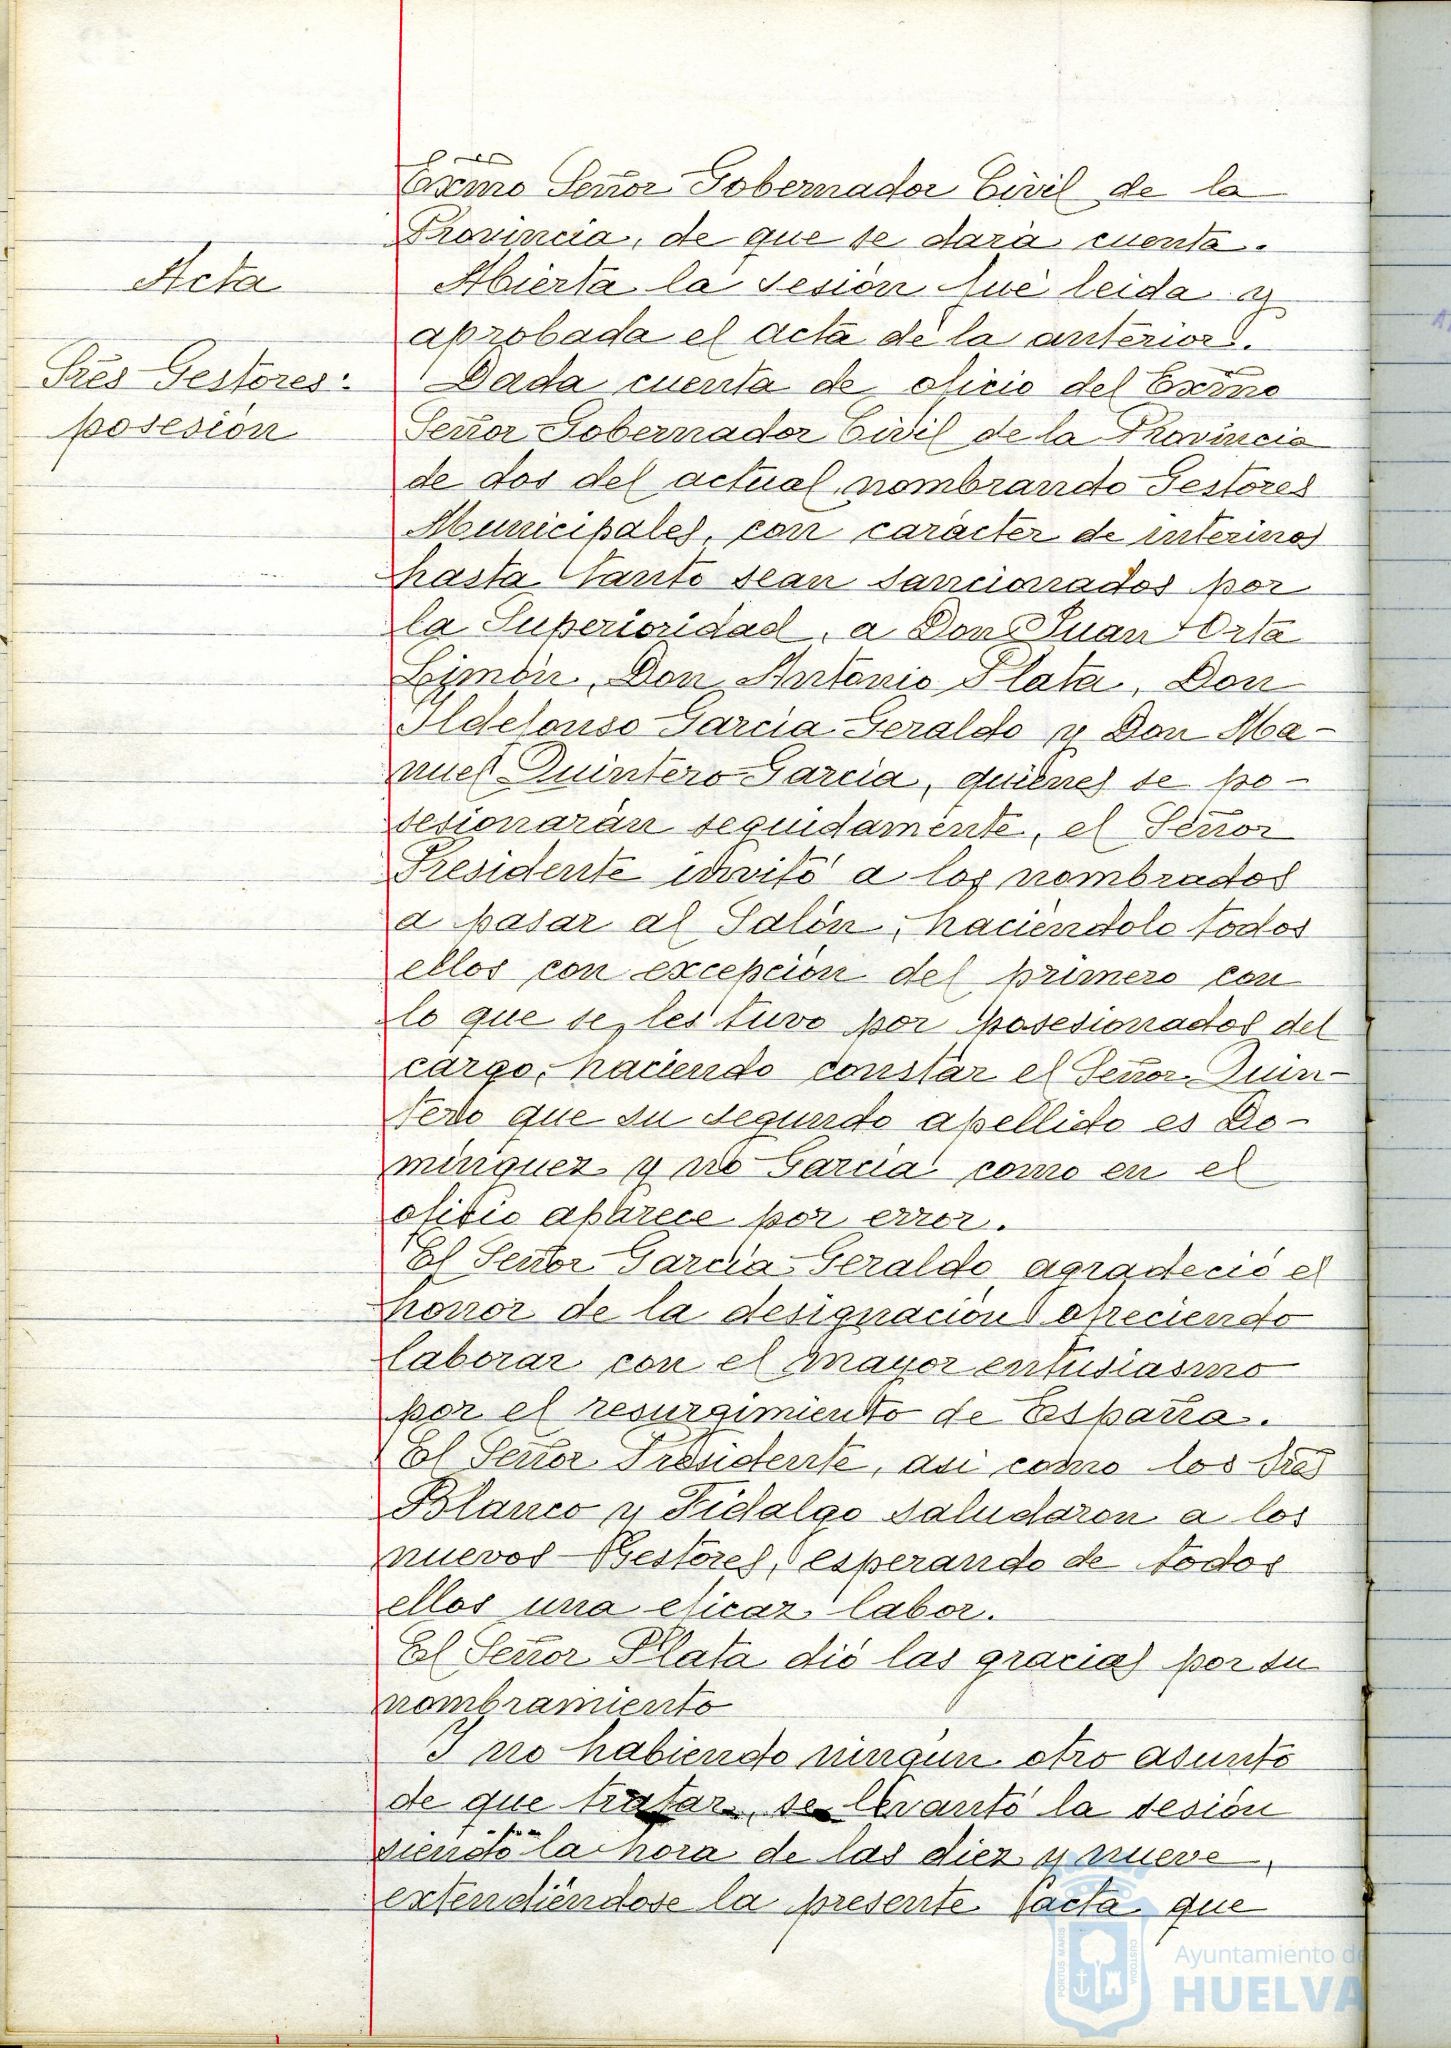 Exmo Señor Gobernador Civil de la
Provincia, de que se dará cuenta.
Acta
Abierta la sesión fué leida y
aprobada el acta de la anterior.
Tres Gestores:
posesión
Dada cuenta de oficio del Exmo
Señor Gobernador Civil de la Provincia
de dos del actual, nombrando Gestores
Municipales, con carácter de interinos
hasta tanto sean sancionados por
la Superioridad, a Don Juan Orta
Limón, Don Antonio Plata, Don
Ildefonso García Geraldo y Don Ma-
nuel Quintero García, quiénes se po-
sesionarán seguidamente, el Señor
Presidente invitó a los nombrados
a pasar al Salón, haciéndolo todos
ellos con excepción del primero con
lo que se les tuvo por posesionados del
cargo, haciendo constar el Señor Quin-
tero que su segundo apellido es Do-
mínguez y no García como en el
oficio aparece por error.
El Señor García Geraldo agradeció el
honor de la designación ofreciendo
laborar con el mayor entusiasmo
por el resurgimiento de España.
El Señor Presidente, asi como los Sres
Blanco y Fidalgo saludaron a los
nuevos Gestores, esperando de todos
ellos una eficaz labor.
El Señor Plata dió las gracias por su
nombramiento
Y no habiendo ningún otro asunto
de que tratar, se levantó la sesión
siendo la hora de las diez y nueve,
extendiéndose la presente acta que
PORTUS MARIS
CUSTODIA
Ayuntamiento de
HUELVA